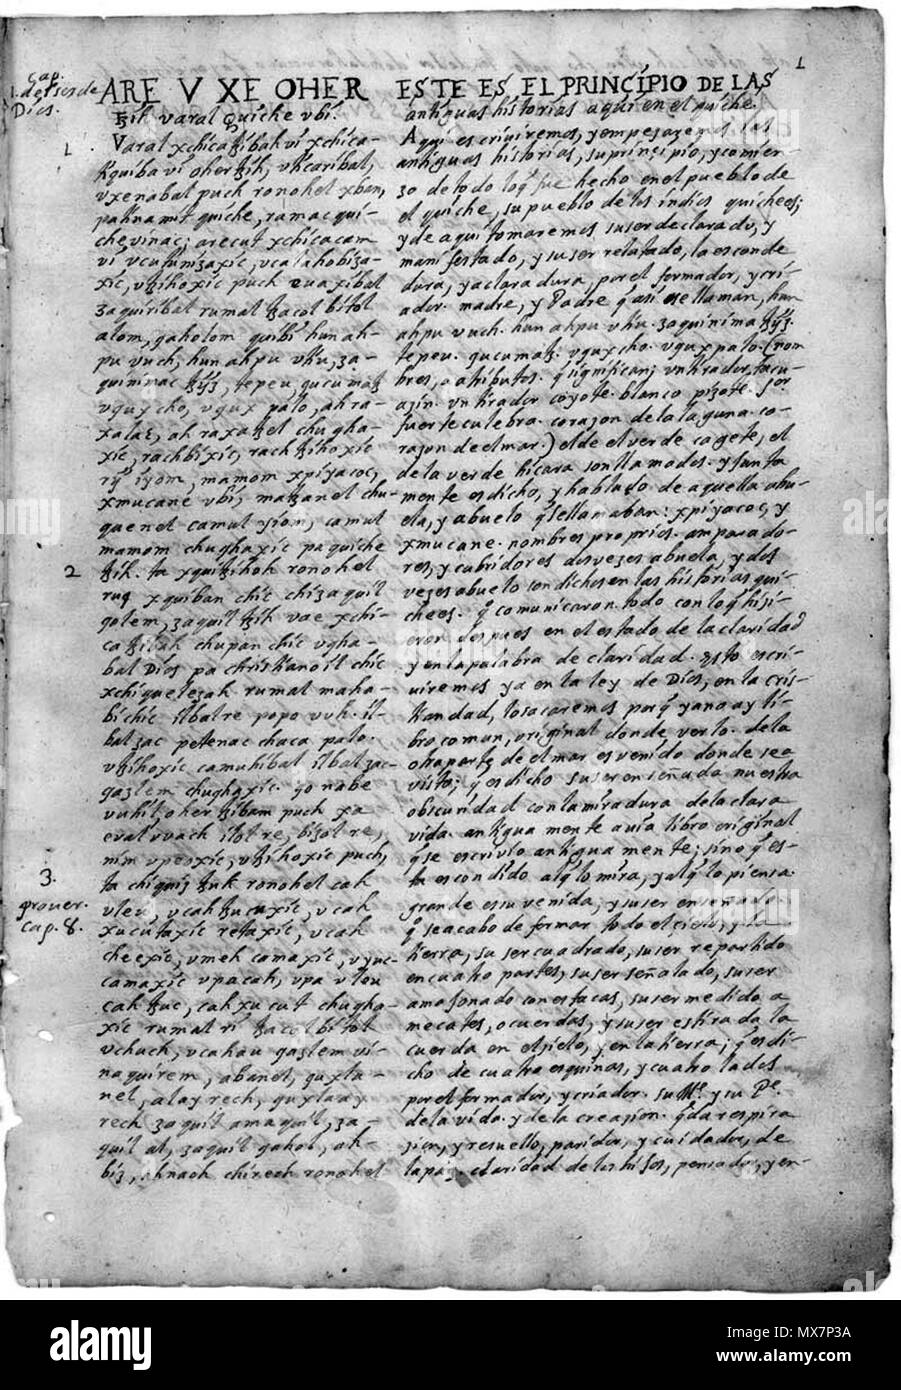 1
Cap.
ARE V XE OHER
ɛih varal Quiche ubi.
Varal xchicaɛibah vi xchica-
tiquiba vi oher ɛih, uticaribal,
uxenabal puch ronohel xban,
pa tinamit quiche, ramac qui-
che vinac; arecut xchicacam
vi ucutunizaxic, ucalahobiza-
xic, uɛihoxic puch euaxibal
zaquiribal rumal ɛacol bitol
alom, qaholom quibi hun ah-
pu vuch, hun ahpu utiu, za-
quinimac ɛyz, tepeu, qucumaɛ
uqux cho, uqux palo, ah ra-
xalaɛ, ah raxaɛel chugha-
xic, rachbixic, rachɛihoxic
ry iyom, mamom xpiyacoc,
xmucane ubi, maɛanel chu-
quenel camul iyom, camul
mamom chughaxic pa quiche
2
ɛih. ta xquiɛihoh ronohel
ruq xquiban chic chi zaquil
qolem, zaquil ɛih vae xchi-
caɛibah chupan chic ugha-
bal Dios pa christianoil chic
xchiquelezah rumal maha-
bi chic ilbal re popo vuh. il-
bal zac petenac chaca palo.
uɛihoxic camuhibal ilbal zac
qazlem chughaxic. go nabe
vuhil, oher ɛibam puch xa
eval uvach ilol re, bizol re,
nim upeoxic, uɛihoxic puch,
3.
ta chiquis ɛuk ronohel cah
prouer.
cap. 8.
uleu, ucah ɛucuxic, ucah
xucutaxic retaxic, ucah
cheexic, umeh camaxic, uyuc-
camaxic upa cah, upa uleu
cah ɛuc, cah xucut chugha-
xic rumal ri ɛacol bitol
uchuch, ucahau qazlem vi-
naquirem, abanel, quxla-
nel, alay rech, quxlaay
rech zaquil amaquil, za-
quil al, zaquil qahol, ah-
biz, ahnaoh chirech ronohel
ESTE ES EL PRINCIPIO DE LAS
antiguas historias aqui en el quiche.
Aqui escriviremos, y empeçaremos las
antiguas historias, su principio, y comien-
zo de todo lo q̃ fue hecho en el pueblo de
el quiche, su pueblo de los indios quichees;
y de aqui tomaremos su ser declarado, y
manifestado, y su ser relatado, la esconde
dura, y aclaradura, por el formador, y cri-
ador. madre, y Padre q̃ asi se llaman, hun
ahpu vuch. hun ahpu utiu. zaquinimatɛyz.
tepeu. qucumaɛ. uquxcho. uquxpalo. (nom
bres, o atributos. q̃ significan; un tirador, tacu-
azin. un tirador coyote. blanco pizote. Sor
fuerte culebra. corazon de la laguna. co-
razon de el mar.) el de el verde cagete, el
de la verde hicara son llamados. y junta
mente es dicho, y hablado de aquella abu-
ela, y abuelo q̃ se llamaban: xpiyacoc, y
xmucane. nombres proprios. amparado-
res, y cubridores dos vezes abuela, y dos
vezes abuelo son dichos en las historias qui-
chees. q̃ comunicaron todo con lo q̃ hizi-
eron despues en el estado de la claridad
y en la palabra de claridad. esto escri-
uiremos ya en la ley de Dios, en la cris-
tiandad, lo sacaremos porq̃ ya no ay li-
bro comun, original donde verlo. de la
otra parte de el mar es venido donde se a
visto; q̃ es dicho su ser enseñada nuestra
obscuridad con la miradura de la clara
vida. antigua mente auia libro original
q̃ se escrivio antigua mente; sino q̃ es-
ta escondido al q̃ lo mira, y al q̃ lo piensa.
grande es su venida, y su ser enseñado.
q̃ se acabo de formar todo el cielo, y la
tierra, su ser cuadrado, su ser repartido
en cuatro partes, su ser señalado, su ser
amojonado con estacas, su ser medido a
mecates, o cuerdas, y su ser estirada la
cuerda en el cielo, y en la tierra; q̃ es di-
cho de cuatro esquinas, y cuatro lados
por el formador, y criador. su Mᵉ. y su Pᵉ.
de la vida. y de la creazion. q̃ da respira
zion, y resuello, paridor, y cuidador, de
la paz, claridad de los hijos, pensador, y en-
alamy
www.alamy.com
MX7P3A